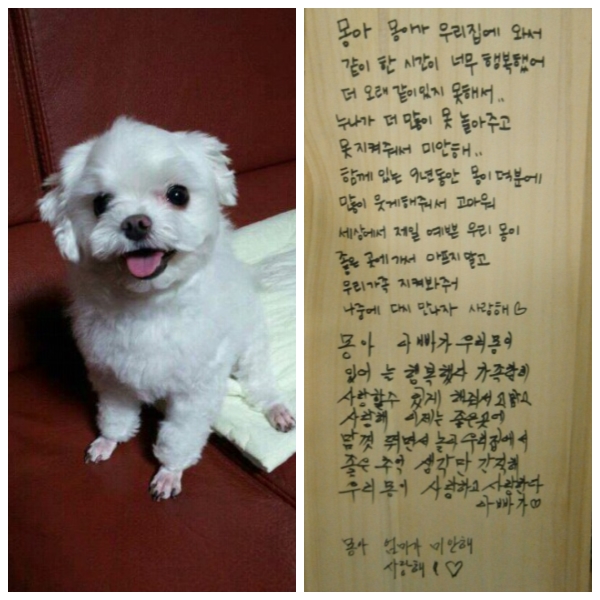 몽아 몽아가 우리집에 와서
같이 한 시간이 너무 행복했어
더 오래 같이있지 못해서..
누나가 더 많이 못 놀아주고
못지켜줘서 미안해..
함께 있는 9년동안 몽이 덕분에
많이 웃게해줘서 고마워
세상에서 제일 예쁜 우리 몽이
좋은 곳에가서 아프지말고
우리가족 지켜봐주어
나중에 다시 만나자 사랑해♡
몽아 아빠가 우리몽이
있어 는 행복했다 가족끼리
사랑할수 있게 해줘서고맙고
사랑해 이제는 좋은곳에
맘껏 뛰면서 놀고 우리집에서
좋은 추억 생각만 간직해
우리몽이 사랑하고 사랑한다
아빠가♡
몽아 엄마가 미안해
사랑해!♡